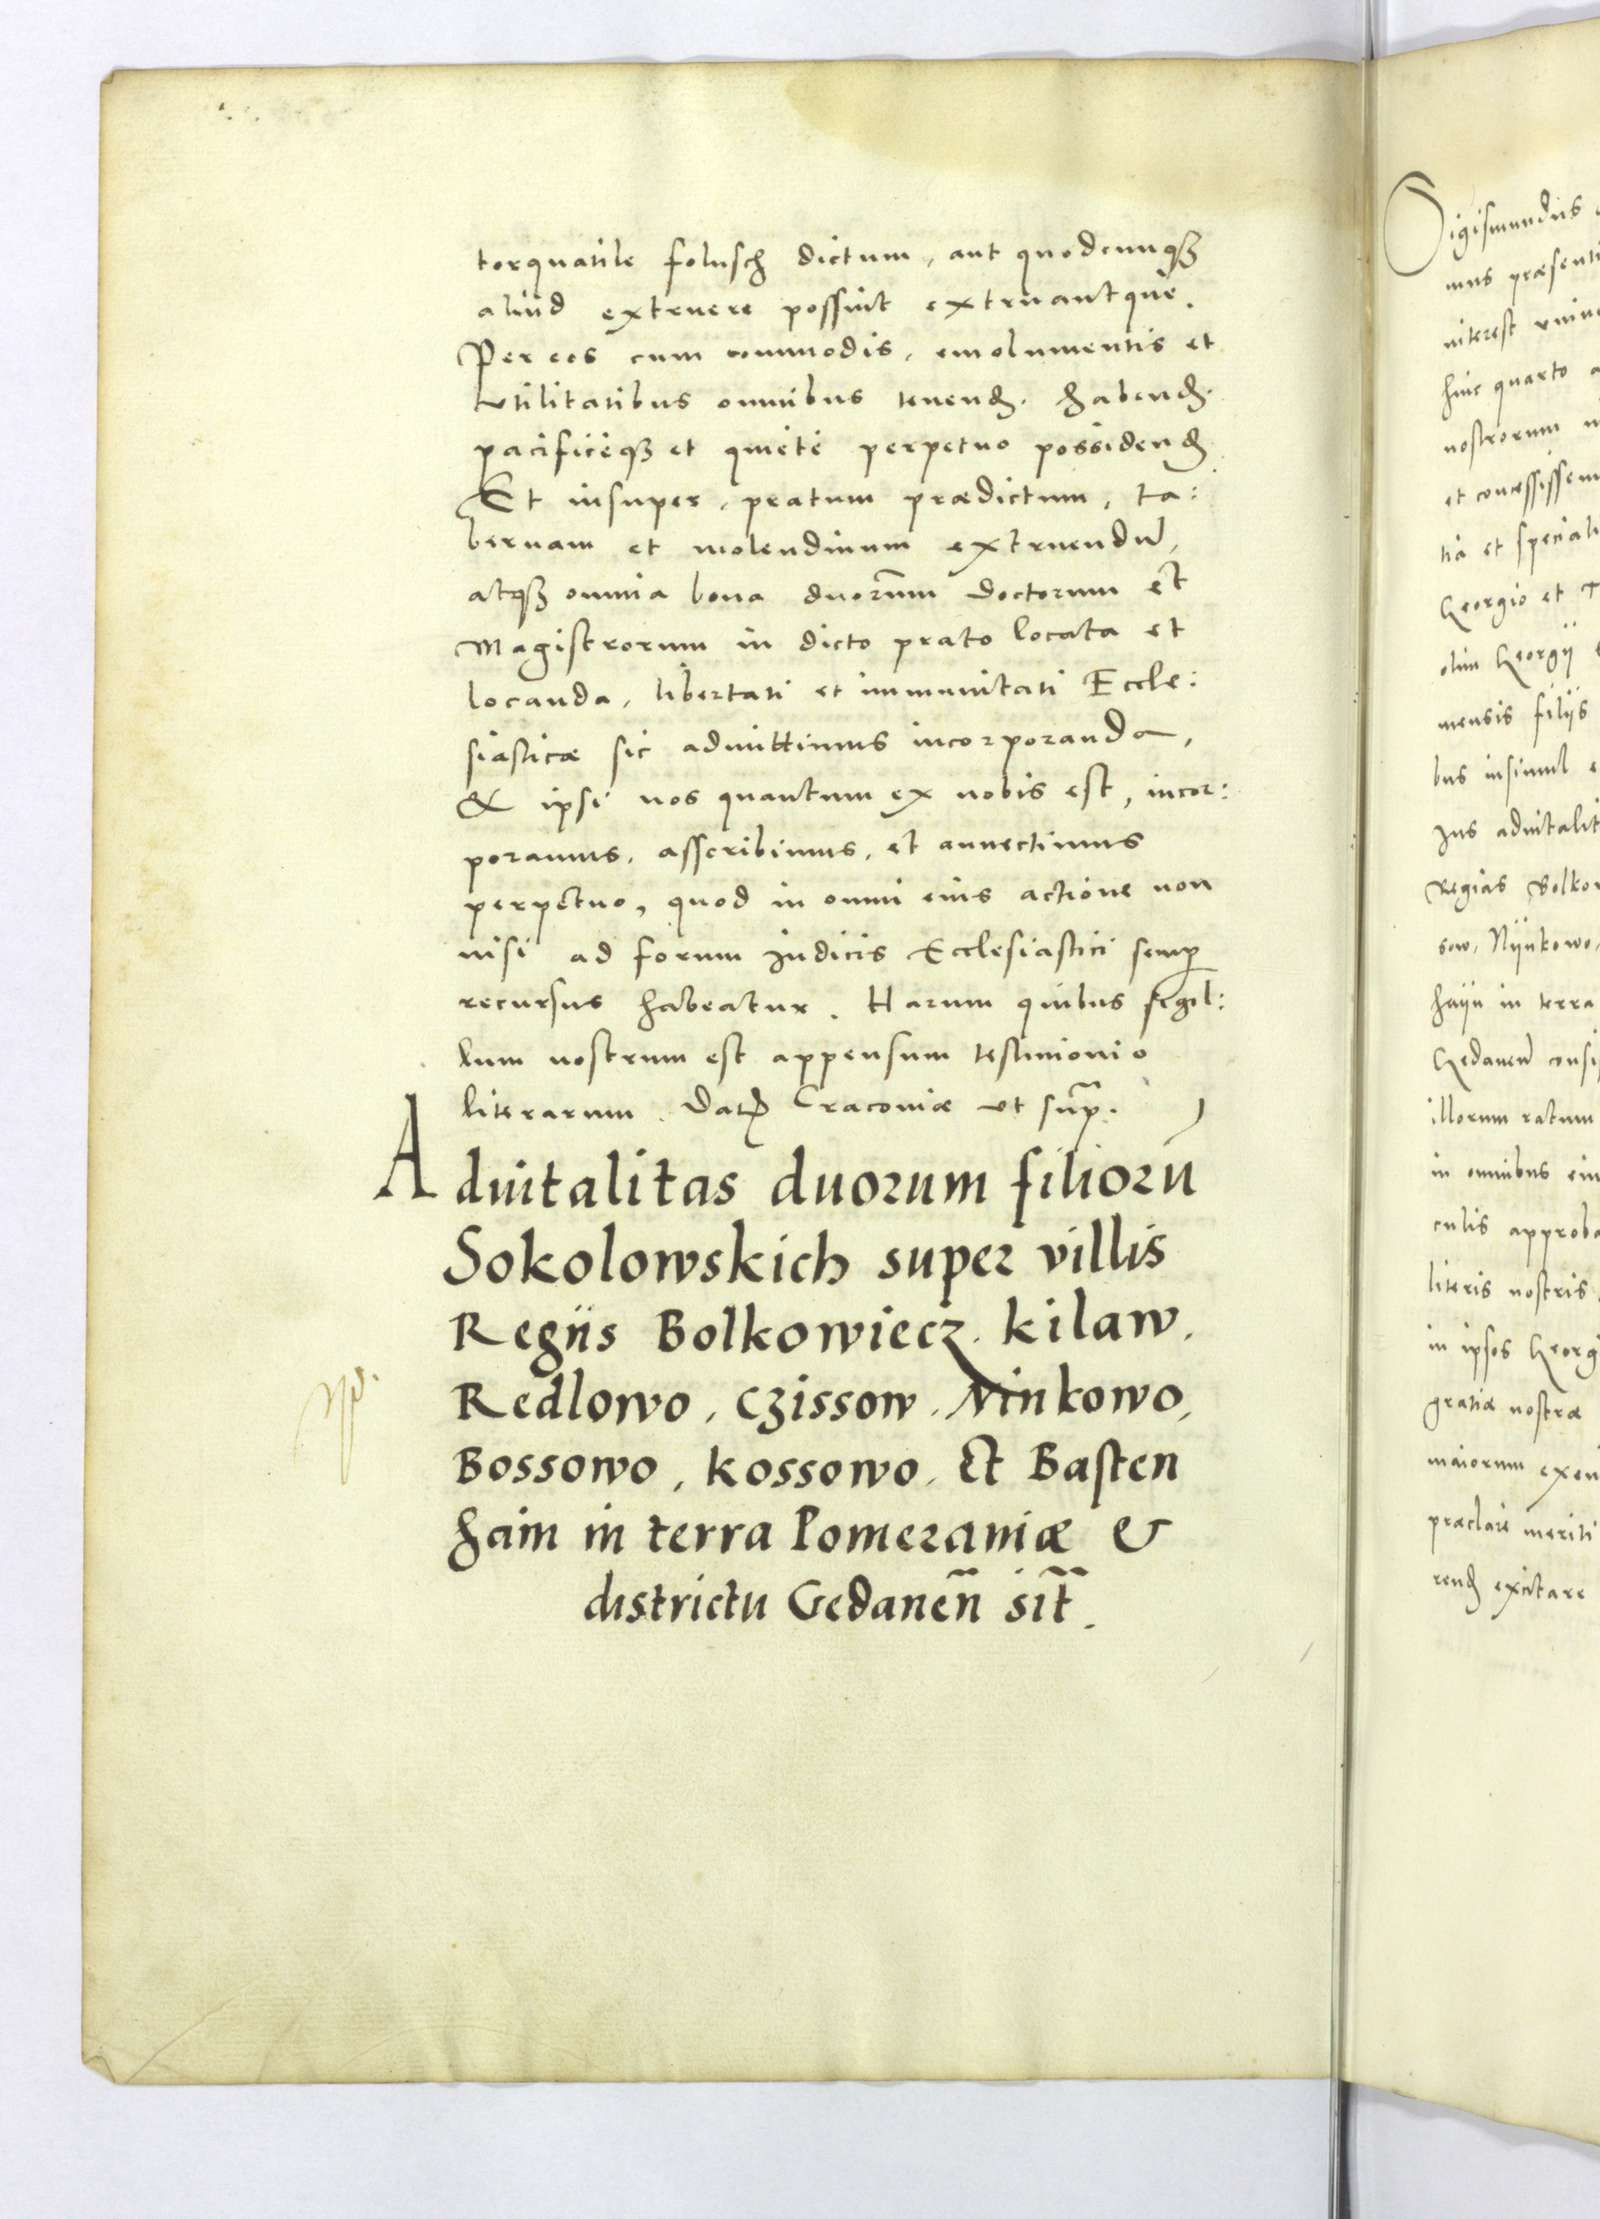 torquatile folusch dictum, aut quodcunqꝫ
aliud extruere possint extruantque.
Per eos cum commodis, emolumentis et
vtilitatibus omnibus tenenđ. habenđ.
pacificèqꝫ et quietè perpetuo possidenđ
Et insuper, pratum prædictum, ta:
bernam et molendinum extruendũ,
atqꝫ omnia bona duorum doctorum et
Magistrorum in dicto prato locata et
locanda, libertati et immunitati Eccle:
siasticæ sic admittimus incorporanda,
& ipsi nos quantum ex nobis est, incor:
poramus, asscribimus, et annectimus
perpetuo, quod in omni eius actione non
nisi ad forum Iudicis Ecclesiastici semꝑ
recursus habeatur. Harum quibus sigil:
lum nostrum est appensum testimonio
literarum. Dat Cracoviæ ut supˉ.
Aduitalitas duorum filiorũ
Sokolowskich super villis
Regiis Bolkowiecz. kilaw.
Redlowo, Czissow, Ninkowo,
Bossowo, kossowo, Et Basten
haim in terra Pomeraniæ &
districtu Gedaneñ sit̃.
Sigismundus
mus præsenti
interest vniue
huc quarto a
nostrorum
et concessissem
tia et speciali
Georgio et
olim Georgij
mensis filijs
bus insimul
Ius aduitalit
Regias Bolkow
sow, Nijnkowo,
haijn in terra
Gedaneñ consi
illorum ratum
in omnibus
culis approba
literis nostris
in ipsos Georg
gratiæ nostræ
maiorum exem
præclare meriti
renđ excitare